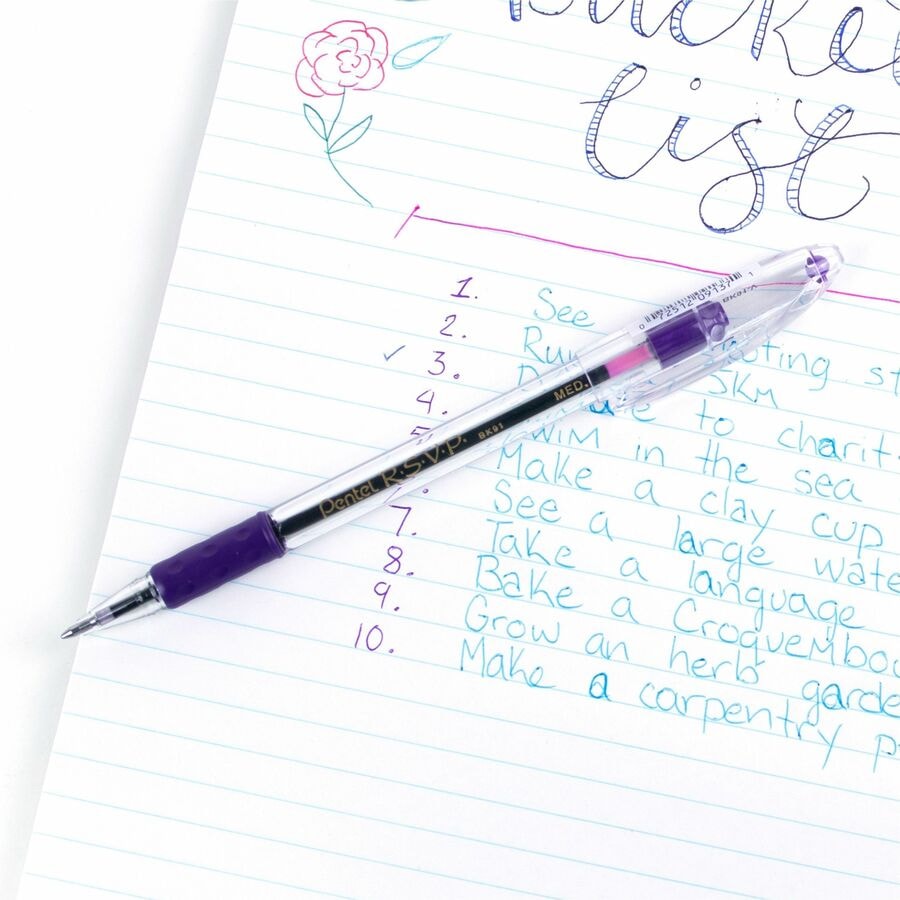 Bucke
list
1. See shooting st
2. Run 5KM
✓ 3. to charit
4. Swim in the sea
5. Make a clay cup
See a large wate
7. Take a language
8. Bake a Croquembou
9. Grow an herb garde
10. Make a carpentry p
Pentel R.S.V.P. BK91 MED.
0 72512 09137 1